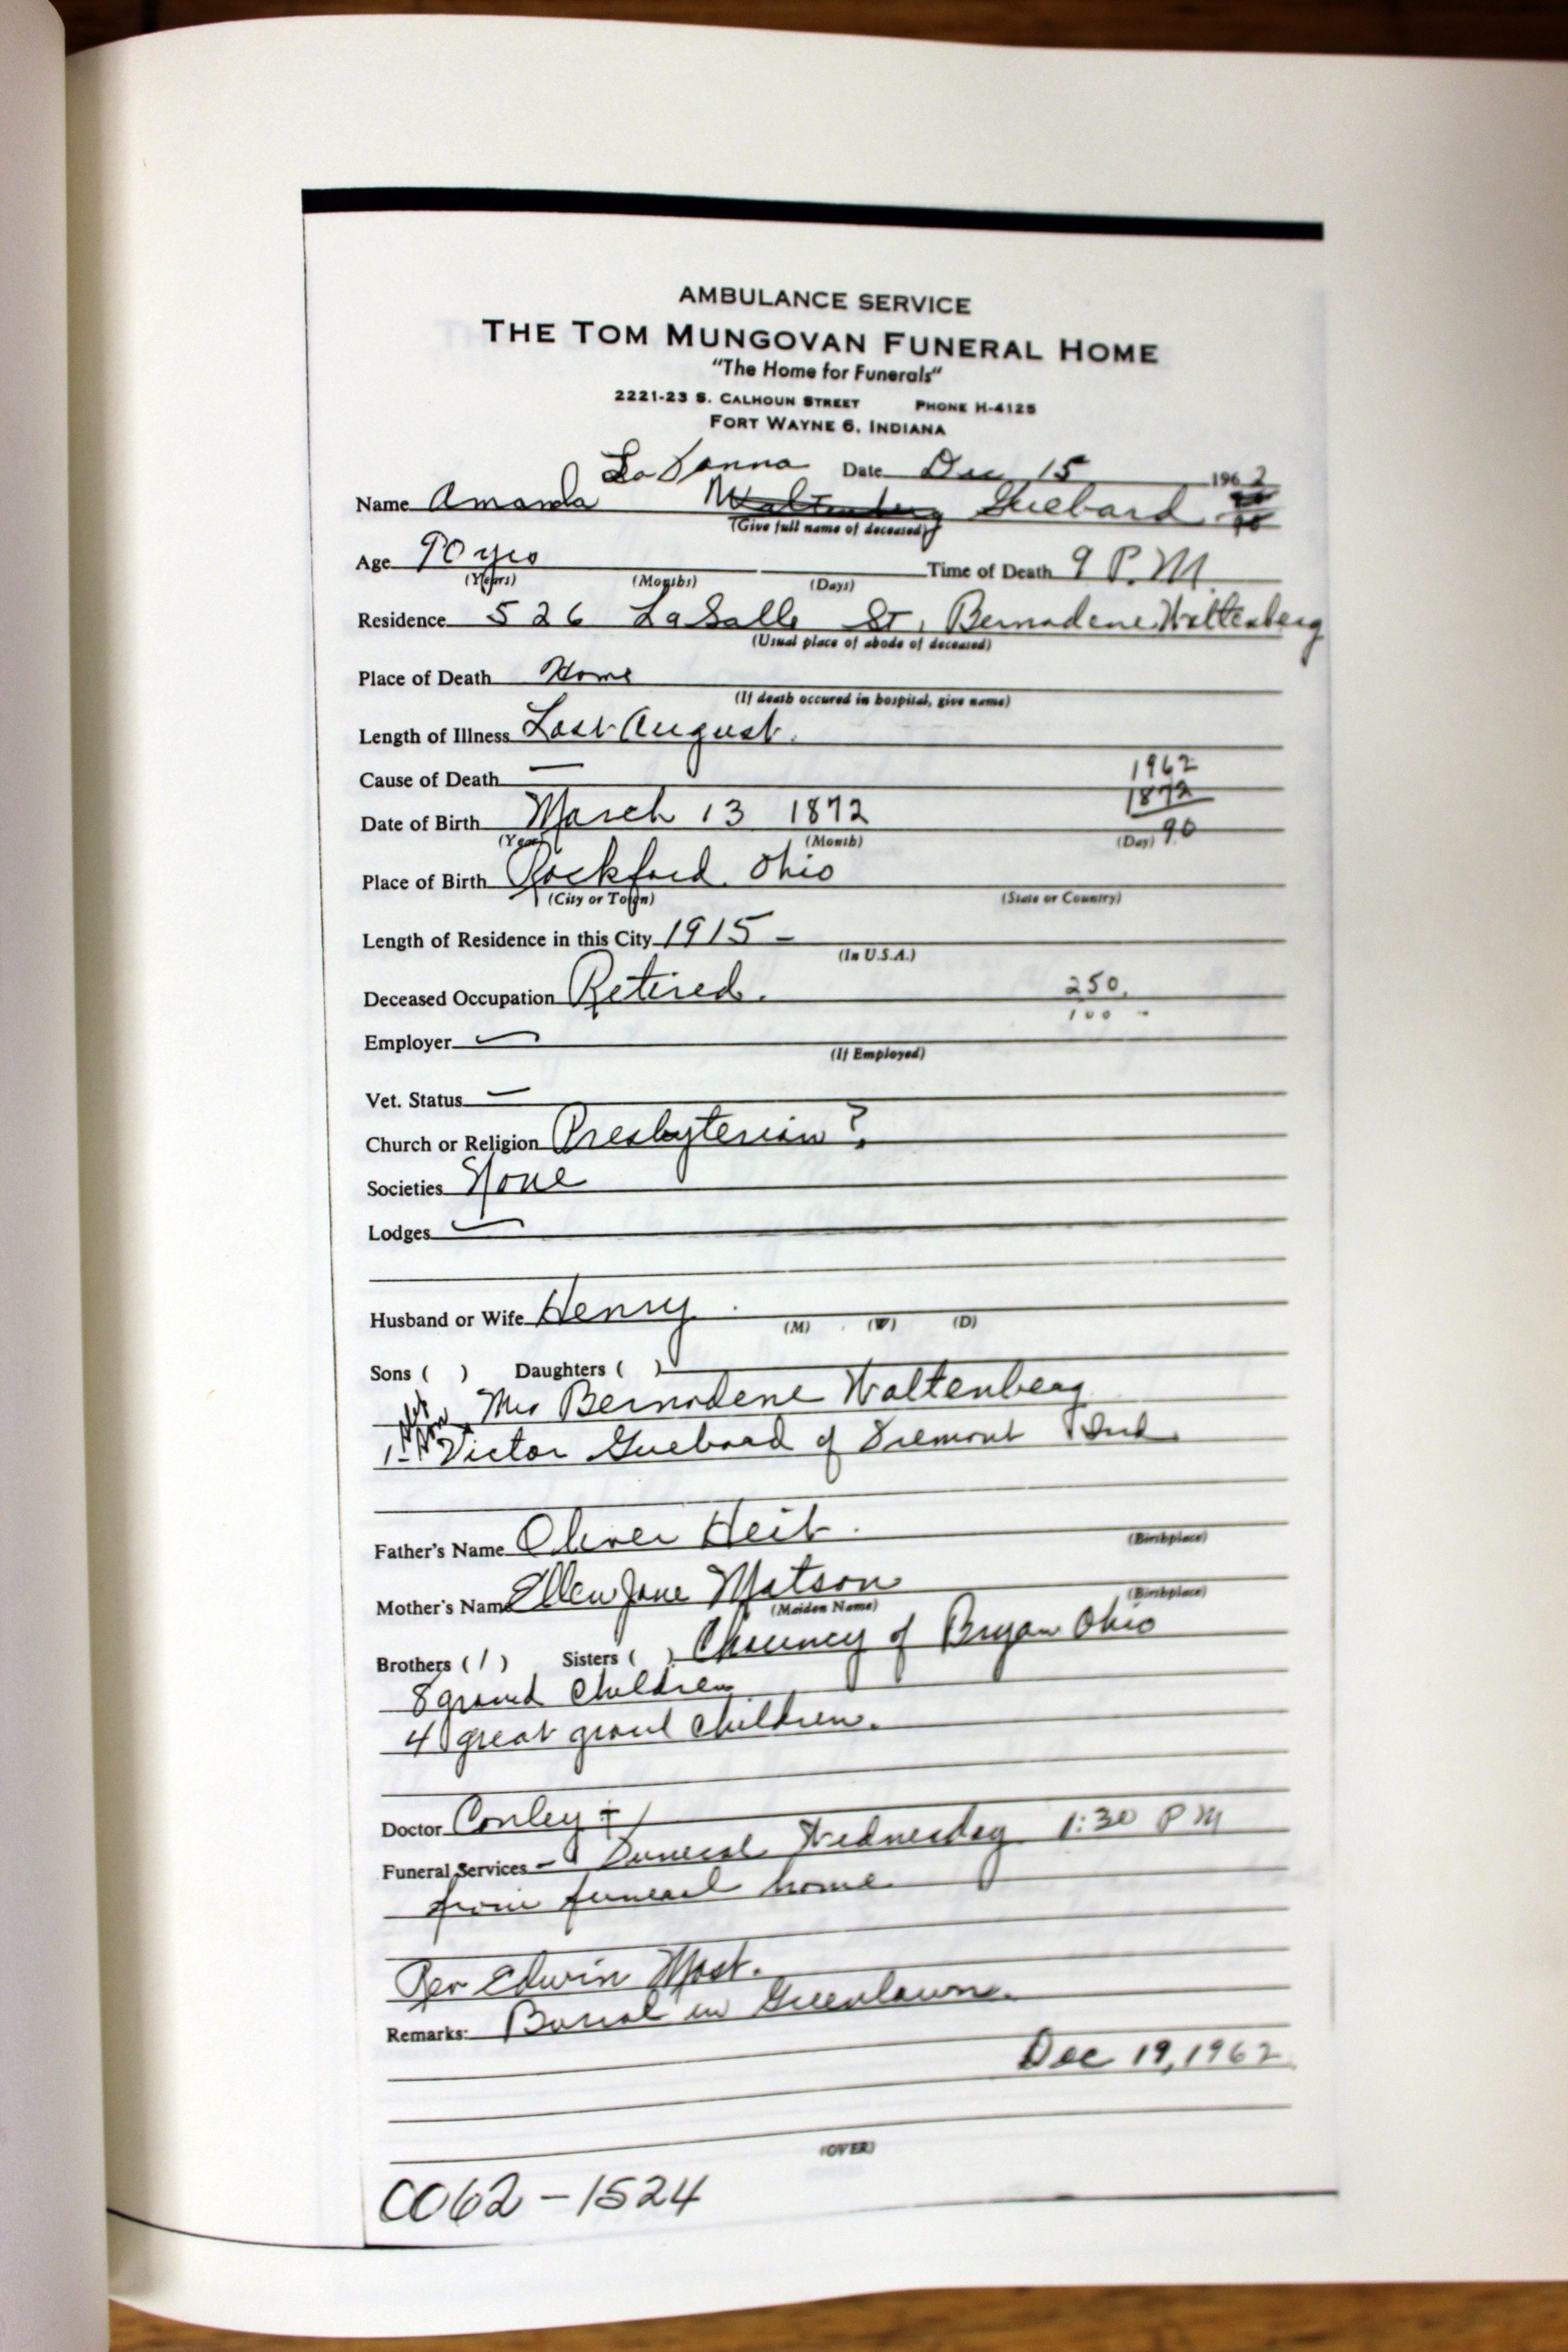 AMBULANCE SERVICE
THE TOM MUNGOVAN FUNERAL HOME
"The Home for Funerals"
2221-23 S. CALHOUN STREET PHONE H-4125
FORT WAYNE 6, INDIANA
LaDonna Date Dec 15 1962
Name Amanda Waltenberg Guebard
(Give full name of deceased)
Age 90 yrs Time of Death 9 P.M.
(Years) (Months) (Days)
Residence 526 LaSalle St, Bernadene Waltenberg
(Usual place of abode of deceased)
Place of Death Home
(If death occured in hospital, give name)
Length of Illness Last August.
Cause of Death — 1962
1872
Date of Birth March 13 1872 90
(Year) (Month) (Day)
Place of Birth Rockford, Ohio
(City or Town) (State or Country)
Length of Residence in this City 1915 -
(In U.S.A.)
Deceased Occupation Retired. 250.
100 -
Employer —
(If Employed)
Vet. Status —
Church or Religion Presbyterian ?
Societies None
Lodges —
Husband or Wife Henry.
(M) (W) (D)
Sons ( ) Daughters ( )
Mrs Bernadene Waltenberg
1- Step Son Victor Guebard of Fremont Ind.
Father's Name Oliver Heit.
(Birthplace)
Mother's Name Ellen Jane Matson
(Maiden Name) (Birthplace)
Brothers (1) Sisters ( ) Chauncy of Bryan Ohio
8 grand Children
4 great grand children.
Doctor Conley
Funeral Services - Funeral Wednesday 1:30 PM
from funeral home
Rev Edwin Mast.
Remarks: Burial in Greenlawn.
Dec 19, 1962
(OVER)
CO62-1524